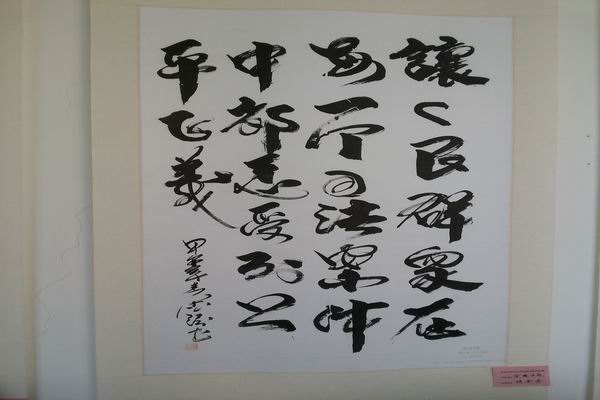 讓人民群眾在
每一个司法案件
中都感受到公
平正義